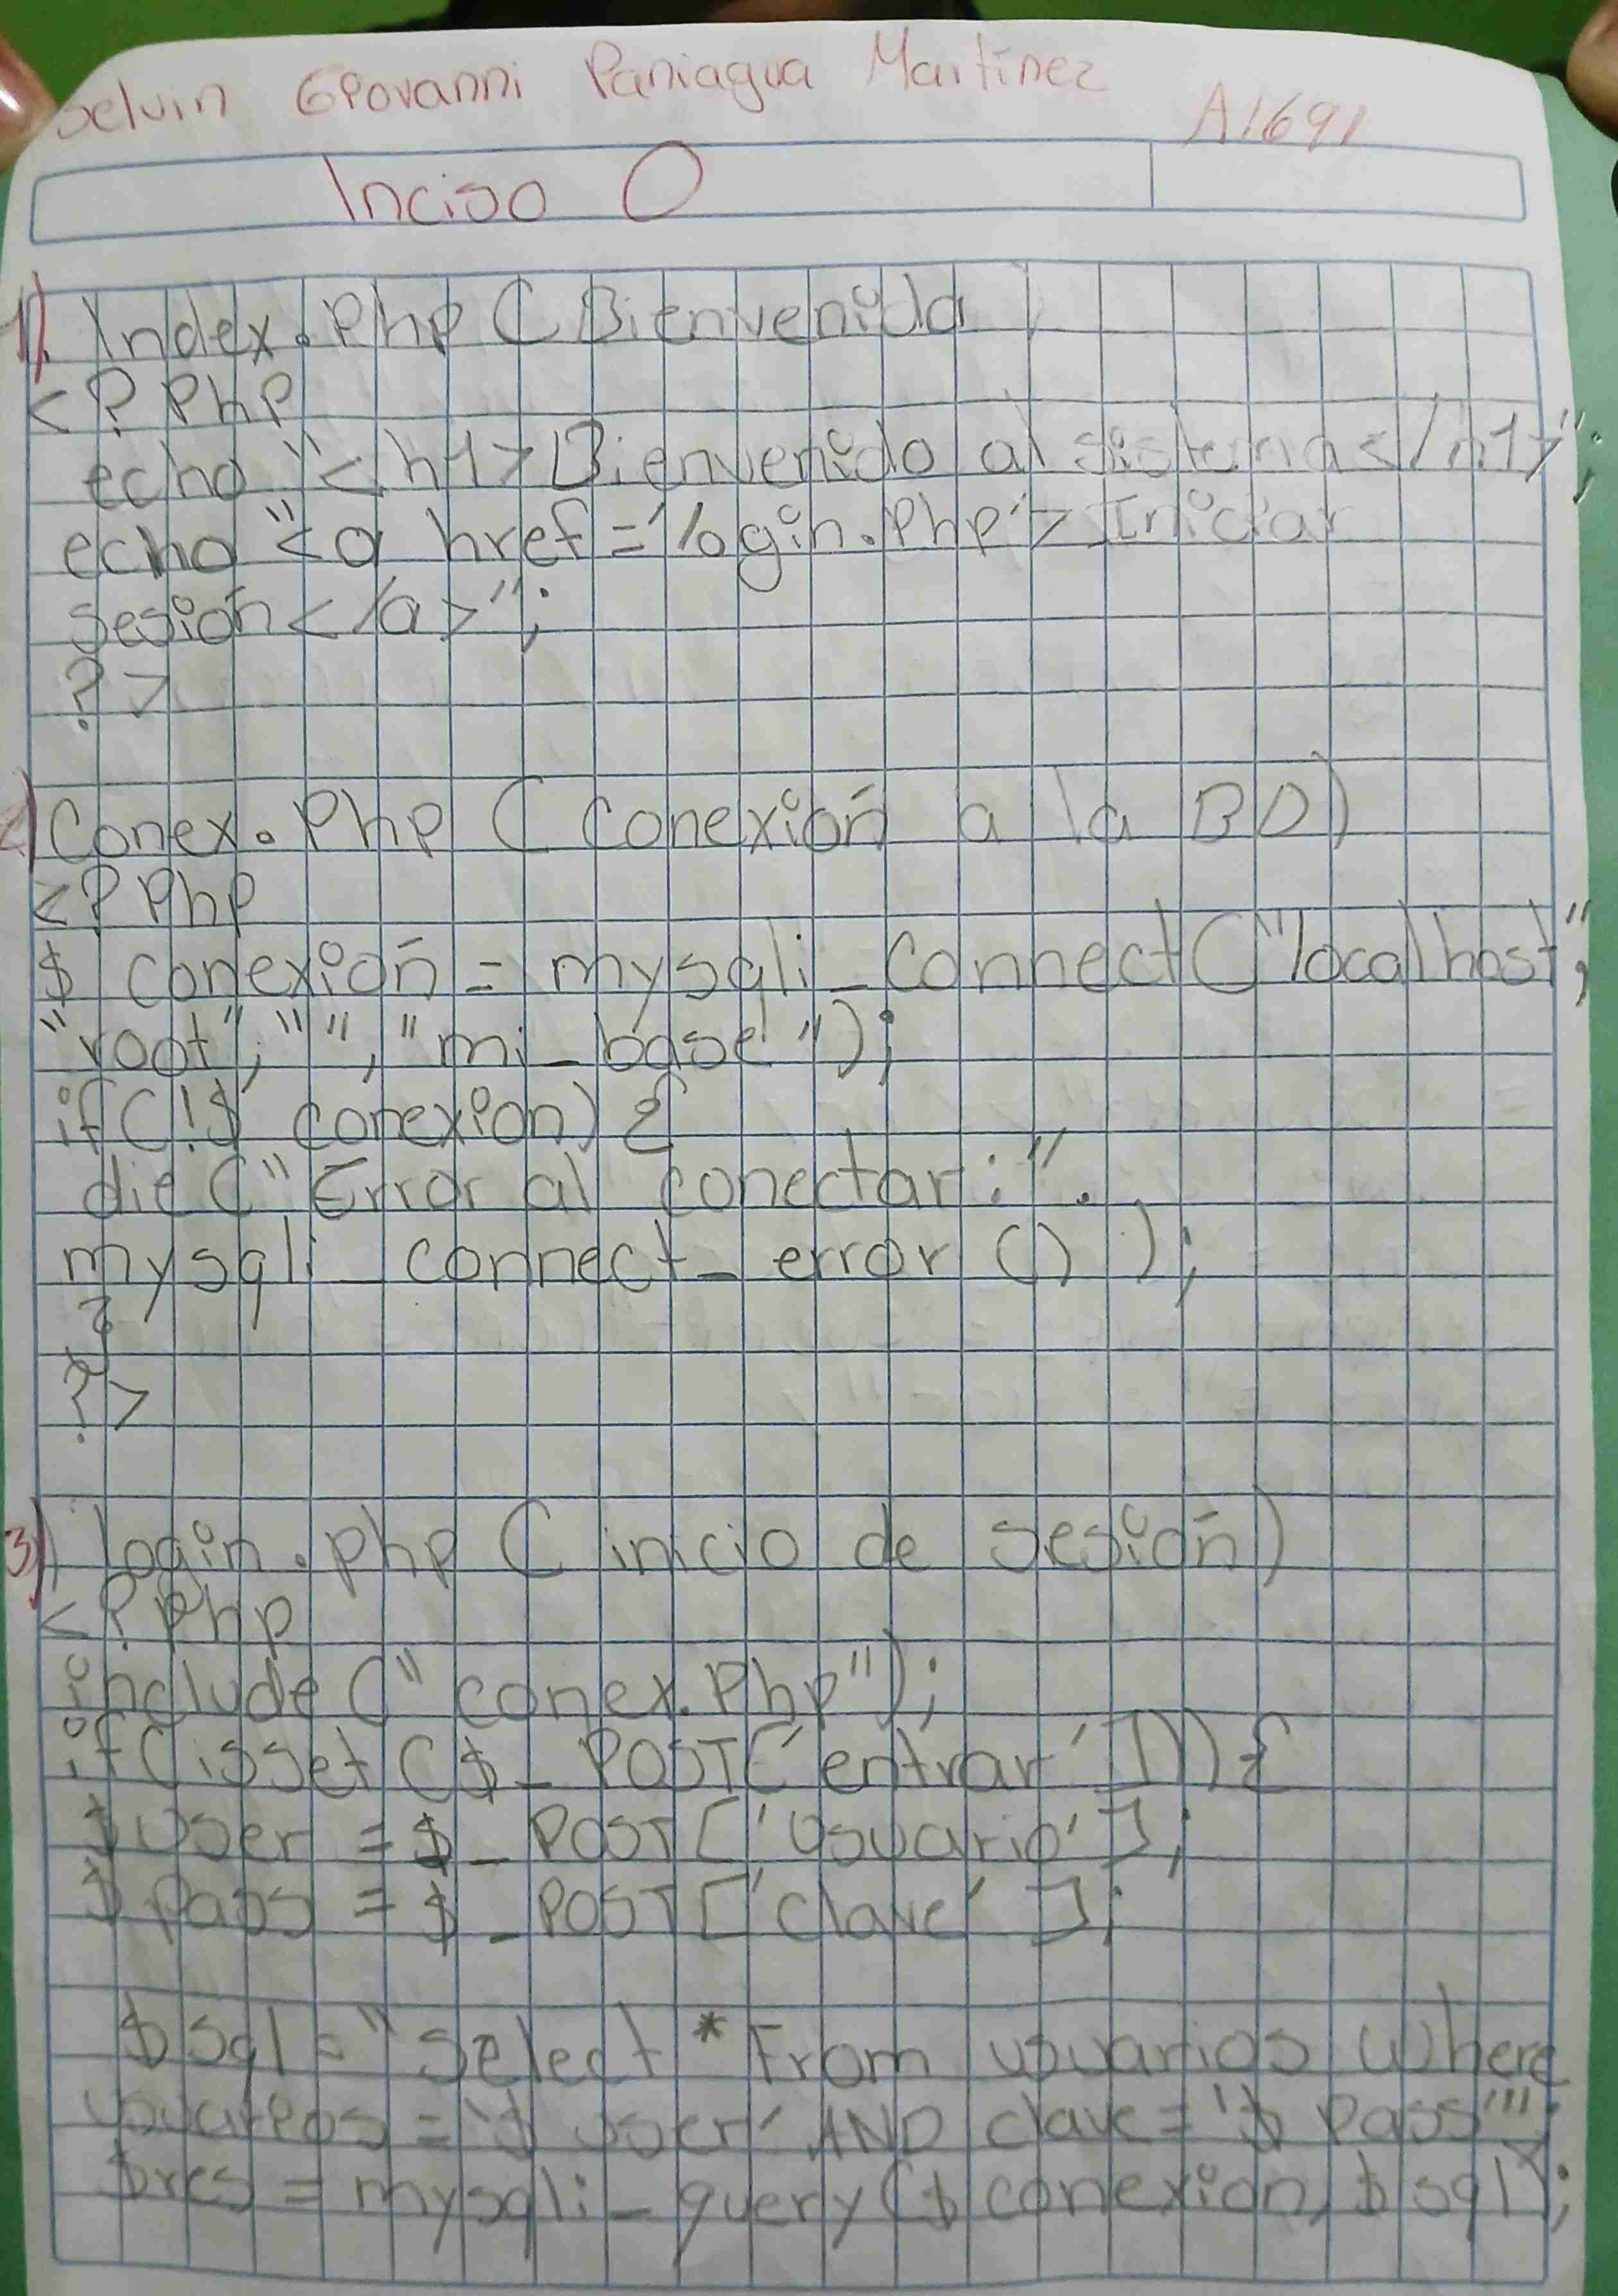 Selvin Giovanni Paniagua Martínez
A1691
Inciso O
1). Index.Php (Bienvenida)
<?Php
echo "<h1>Bienvenido al sistema</h1>";
echo "<a href='login.Php'>Iniciar
sesión</a>";
?>
2) Conex.Php (conexión a la BD)
<?Php
$ conexión = mysqli_connect("localhost",
"root", "", "mi_base");
if(!$ conexion) {
die("Error al conectar: ".
mysqli_connect_error());
}
?>
3) login.php (inicio de sesión)
<?Php
include("conex.Php");
if(isset($_POST['entrar'])) {
$User = $_POST['Usuario'];
$Pass = $_POST['Clave'];
$sql = "Select * From usuarios Where
usuarios = '$user' AND clave = '$Pass'";
$res = mysqli_query($conexion, $sql);